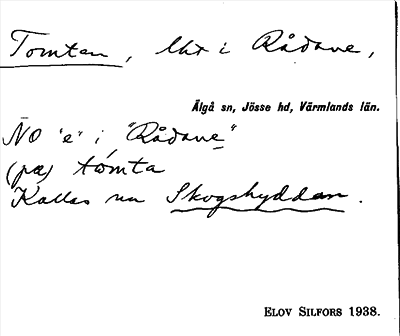 Tomtan, lht i Rådane,
Älgå sn, Jösse hd, Värmlands län.
NO "e" i "Rådane"
(pa) tomta
Kallas nu Skogshyddan.
ELOV SILFORS 1938.